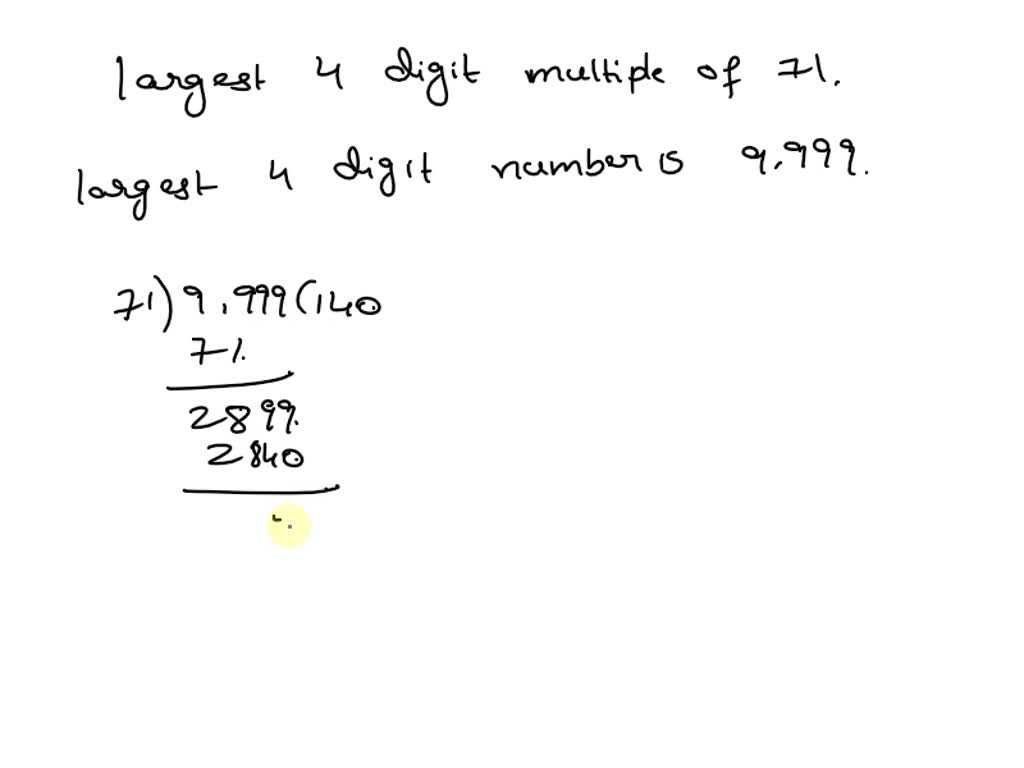 largest 4 digit multiple of 71.
largest 4 digit number is 9,999.
71) 9,999 (140
71
2899
2840